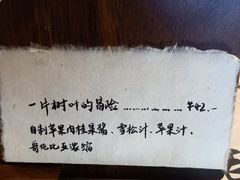 一片树叶的冒险 ………………… ¥42.—
自制苹果肉桂果酱、雪松汁、苹果汁、
哥伦比亚浓缩